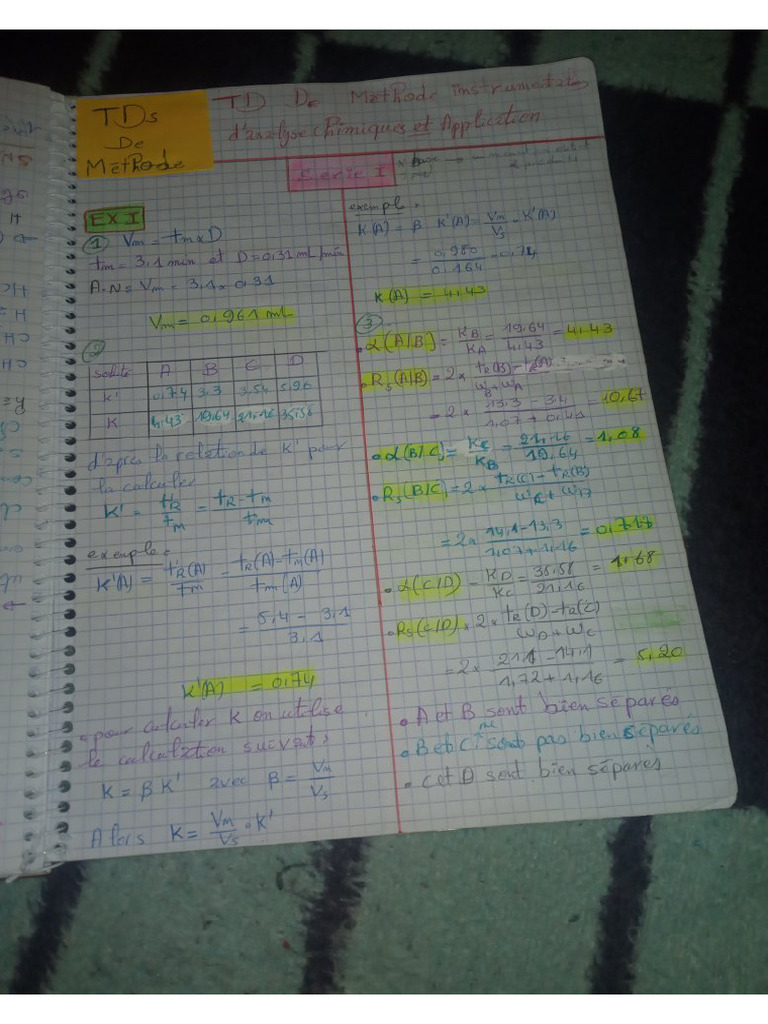 TDs
De
Méthode
TD De Méthode instrumentales
d'analyse chimiques et Application
Serie I
EX I
① Vm = tm x D
tm = 3,1 min et D = 0,31 mL/min
A.N = Vm = 3,1 x 0,31
Vm = 0,961 mL
②
soluté A B C D
K' 0,74 3,3 3,54 5,96
K 4,43 19,64 21,16 35,58
d'après la relation de K' pour
la calculer
K' = t'R/tm = tR - tm/tm
exemple:
K'(A) = t'R(A)/tm = tR(A)-tm(A)/tm(A)
= 5,4 - 3,1/3,1
K'(A) = 0,74
pour calculer K on utilise
le calculation suivat:
K = β K' avec β = Vm/Vs
Alors K = Vm/Vs . K'
exemple:
K(A) = β K'(A) = Vm/Vs . K'(A)
= 0,980/0,164 . 0,74
K(A) = 4,43
③
• α(A/B) = KB/KA = 19,64/4,43 = 4,43
• Rs(A/B) = 2 x tR(B)-tR(A)/wB + wA
= 2 x 13,3 - 5,4/1,07 + 0,41 = 10,67
• α(B/C) = KC/KB = 21,16/19,64 = 1,08
• Rs(B/C) = 2 x tR(C) - tR(B)/wC + wB
= 2 x 14,1 - 13,3/1,07 + 1,16 = 0,717
• α(C/D) = KD/KC = 35,58/21,16 = 1,68
• Rs(C/D) = 2 x tR(D) - tR(C)/wD + wC
= 2 x 21,1 - 14,1/1,72 + 1,16 = 5,20
• A et B sont bien séparés
• B et C ne sont pas bien séparés
• C et D sont bien séparés